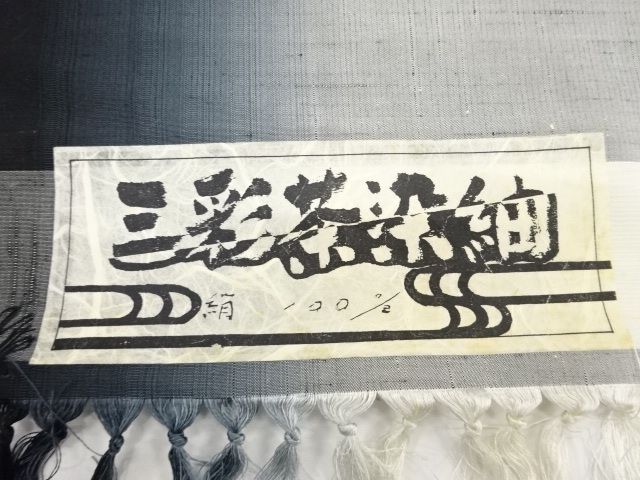 三彩茶染紬
絹 100%